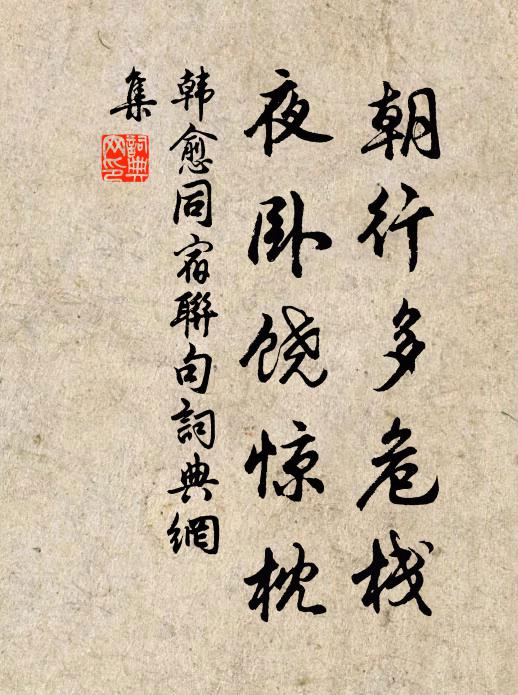 朝行多危栈
夜卧饶惊枕
韩愈同宿聯句詞典網
集
詞典
网印